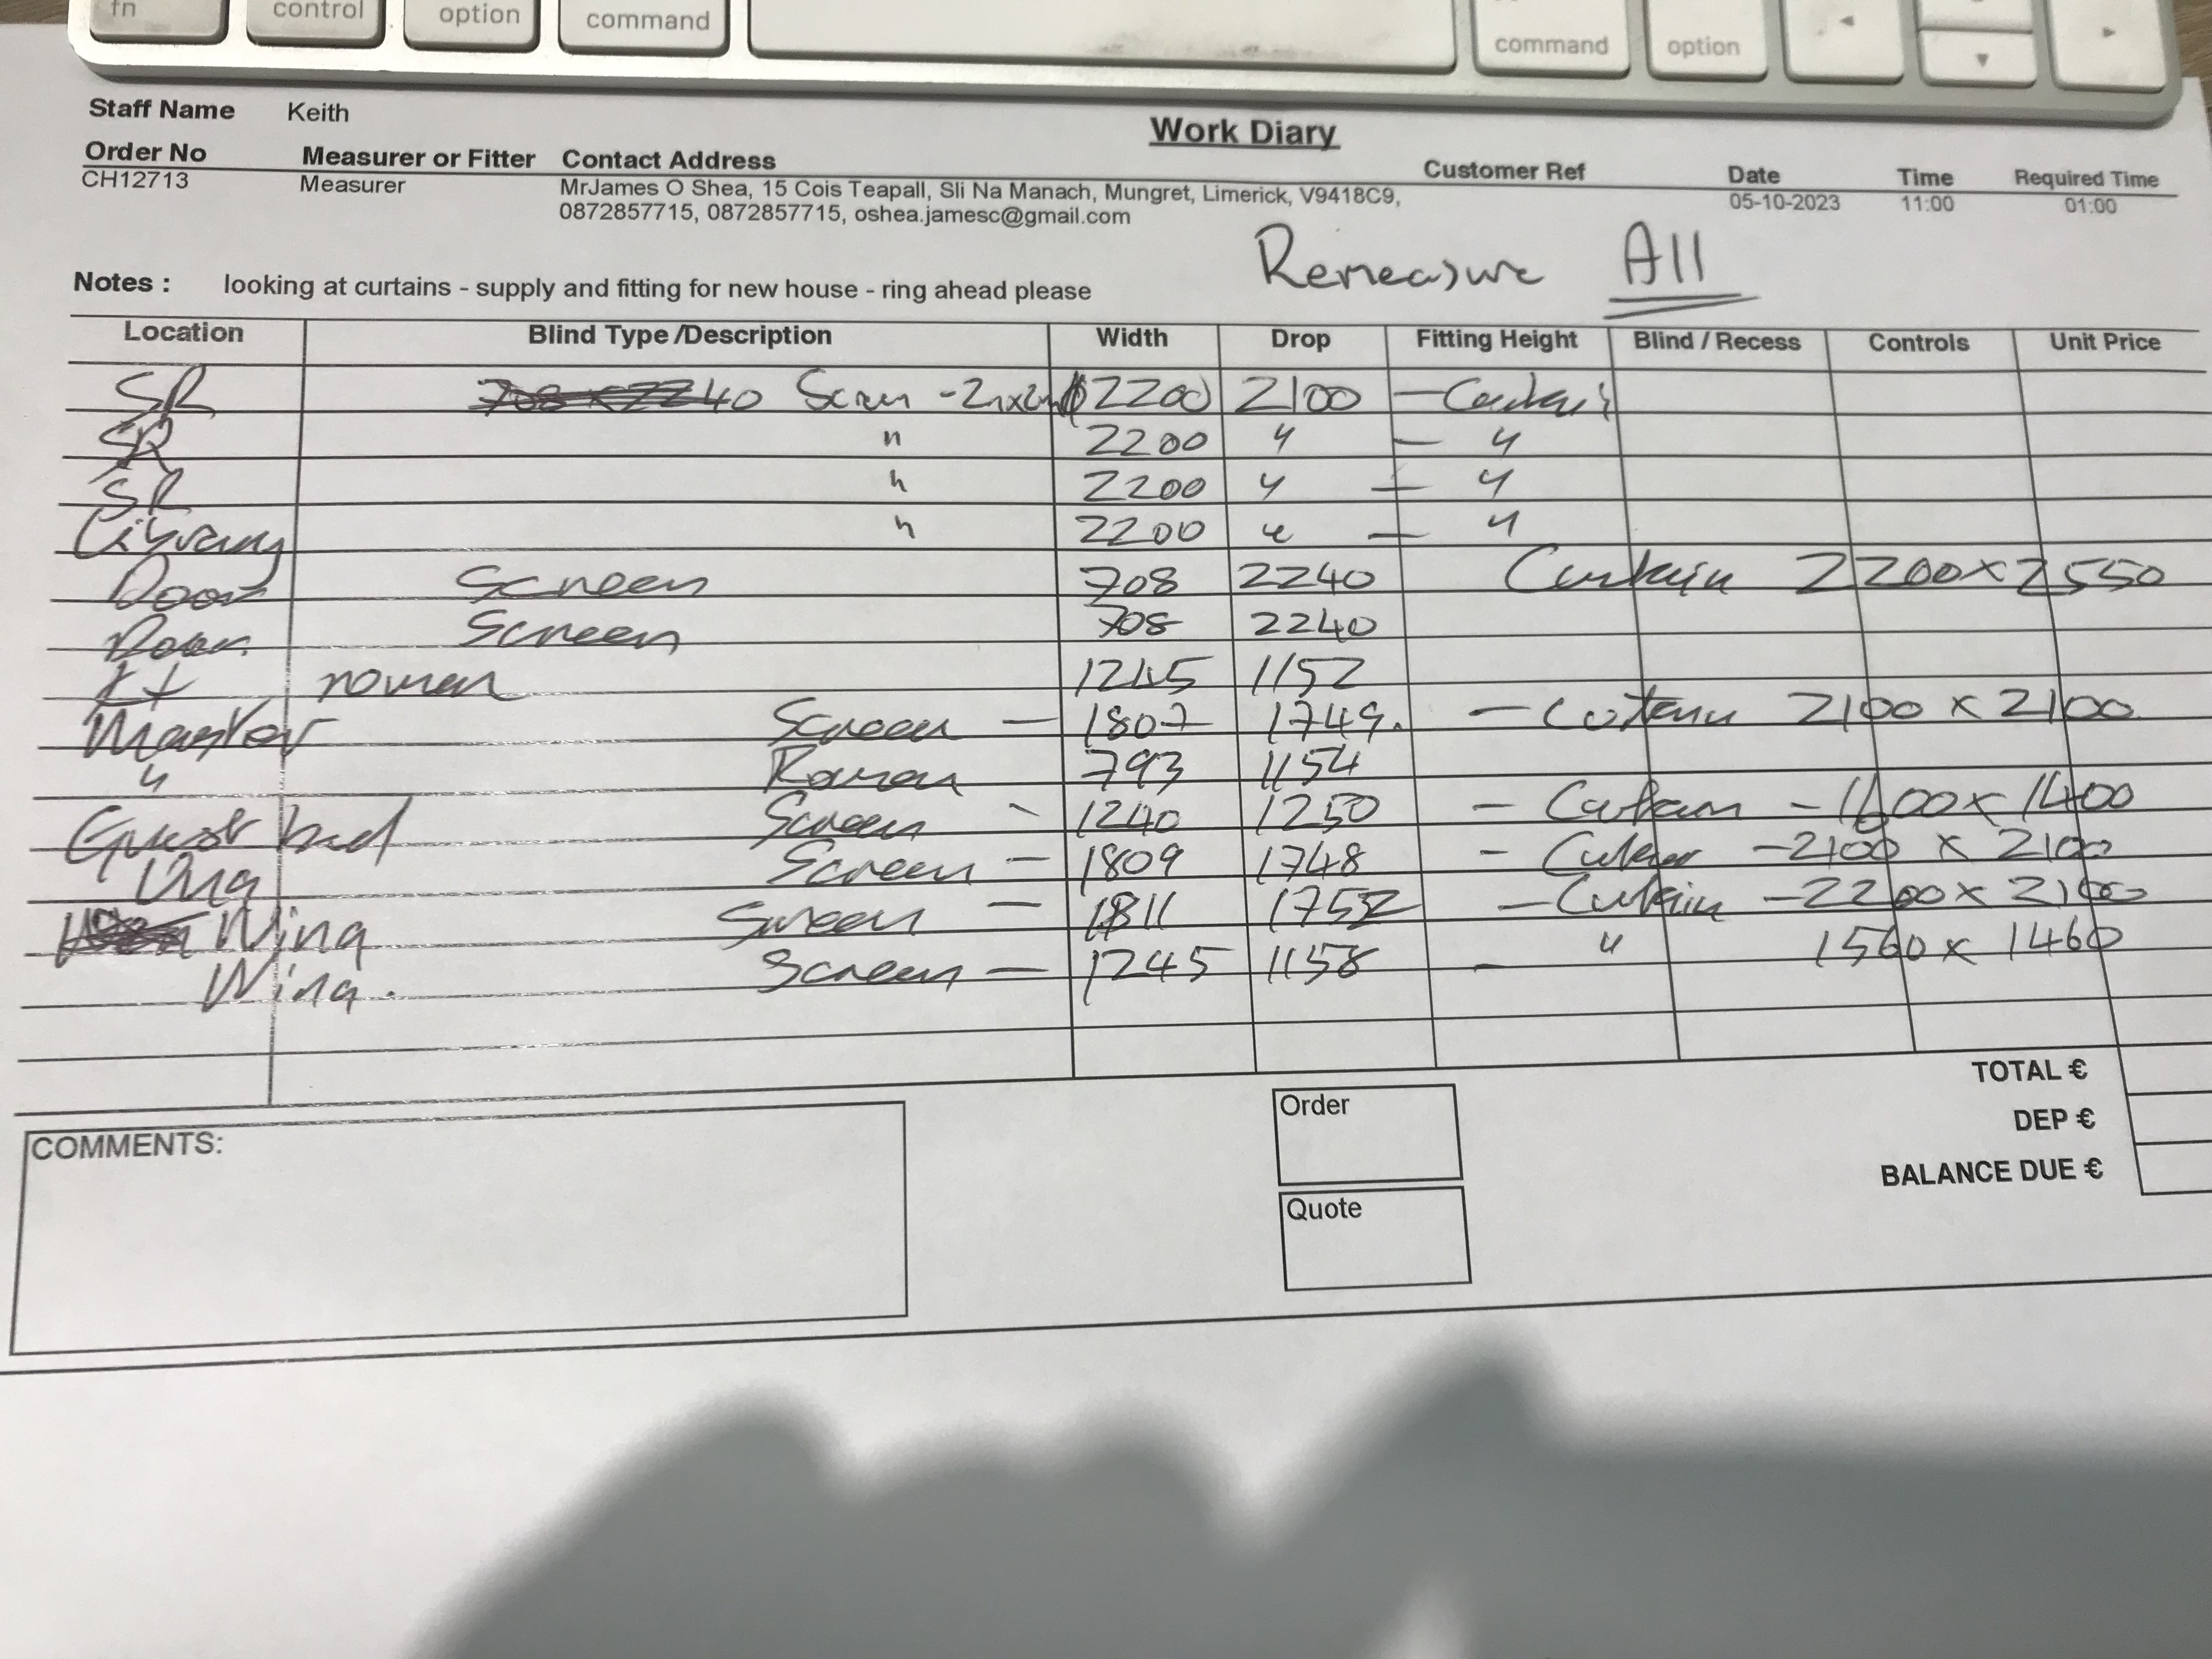 fn control option command command option
Staff Name Keith
Work Diary
Order No Measurer or Fitter Contact Address Customer Ref Date Time Required Time
CH12713 Measurer MrJames O Shea, 15 Cois Teapall, Sli Na Manach, Mungret, Limerick, V9418C9, 05-10-2023 11:00 01:00
0872857715, 0872857715, oshea.jamesc@gmail.com
Remeasure All
Notes : looking at curtains - supply and fitting for new house - ring ahead please
Location Blind Type /Description Width Drop Fitting Height Blind / Recess Controls Unit Price
SR 2200 2100 - Curtain
SR " 2200 " - "
SR " 2200 " - "
Library " 2200 " - "
Door Screen 708 2240 Curtain 2200 x 2550
Door Screen 708 2240
Kt roman 1245 1152
Master Screen - 1807 1749. - Curtain 2100 x 2100
" Roman 793 1154
Guest bed Screen - 1240 1250 - Curtain - 1600 x 1400
Screen - 1809 1748 - Curtain - 2100 x 2100
Wing Screen - 1811 1752 - Curtain - 2200 x 2100
Wing. Screen - 1245 1158 - " 1560 x 1460
TOTAL €
Order
DEP €
COMMENTS:
BALANCE DUE €
Quote